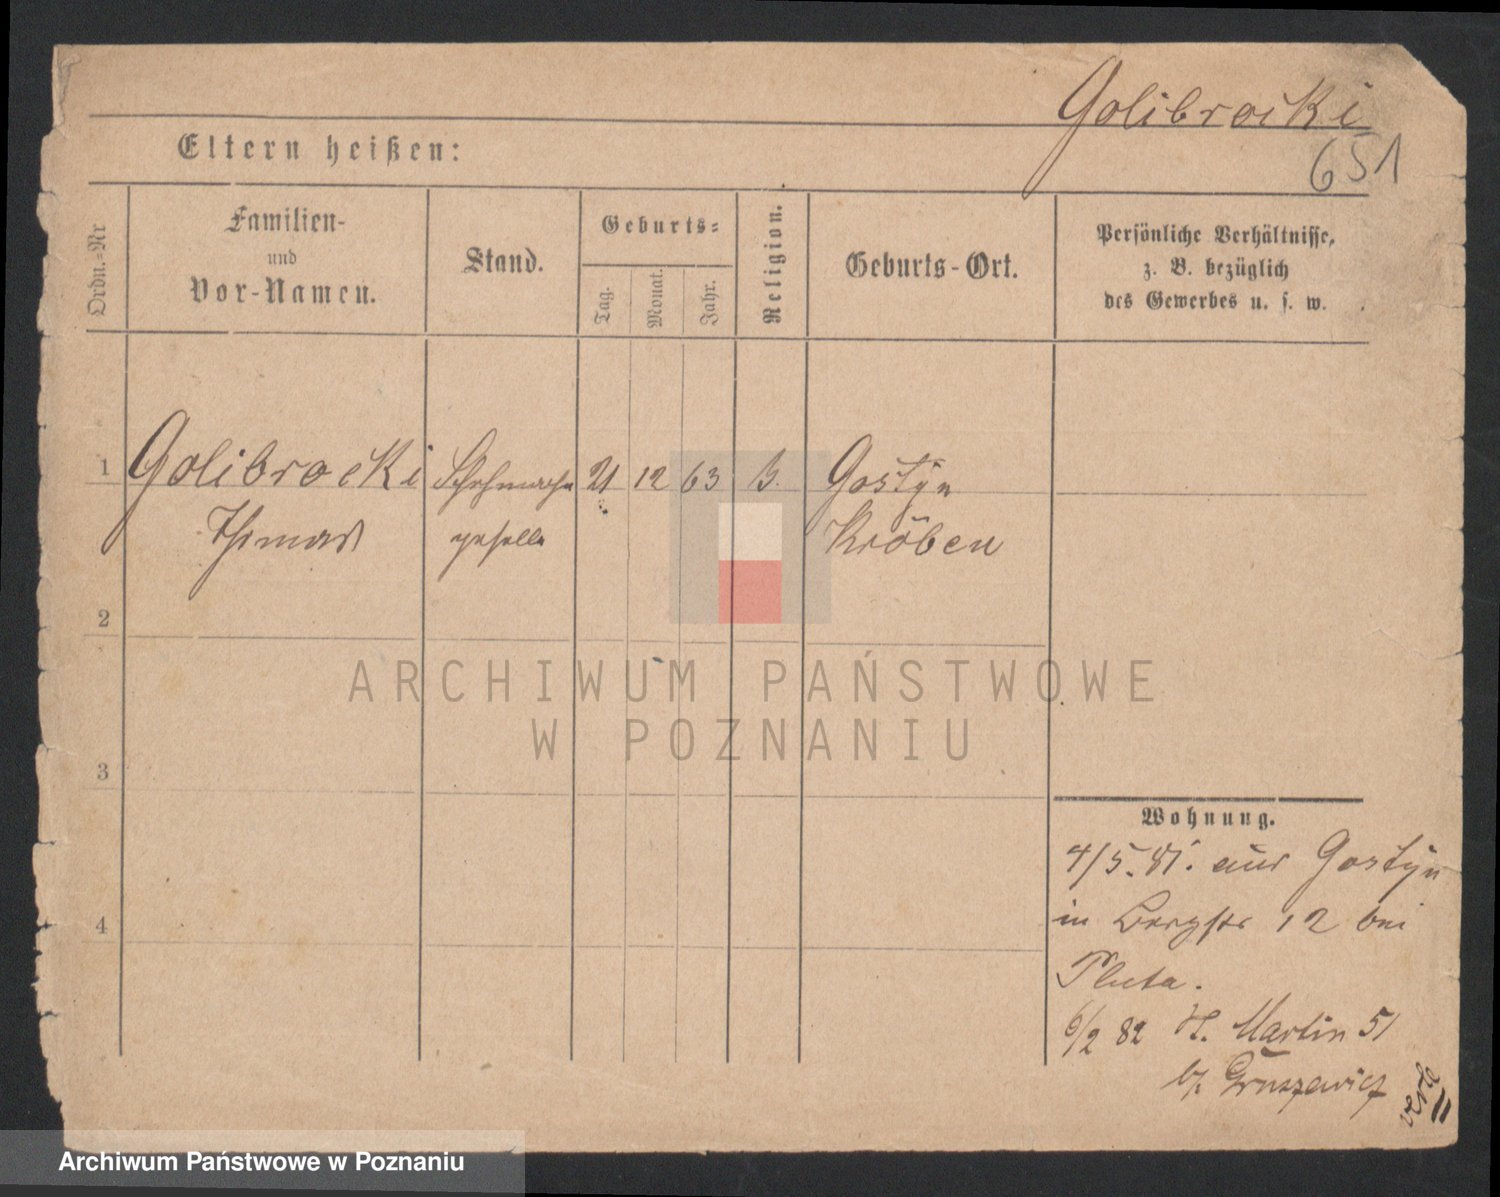 Golibrocki
651
Eltern heißen:
Ordn.-Nr
Familien-
und
Vor-Namen.
Stand.
Geburts-
Tag.
Monat.
Jahr.
Religion.
Geburts-Ort.
Persönliche Verhältnisse,
z. B. bezüglich
des Gewerbes u. s. w.
1 Golibrocki 21 12 63 Gostÿn
Thomas geselle Kröben
2
3
4
Wohnung.
4/5. 81. aus Gostÿn
in Bergstr 12 bei
Pluta.
6/2 82 St. Martin 51
b/ Gruszewicz
ARCHIWUM PAŃSTWOWE
W POZNANIU
Archiwum Państwowe w Poznaniu